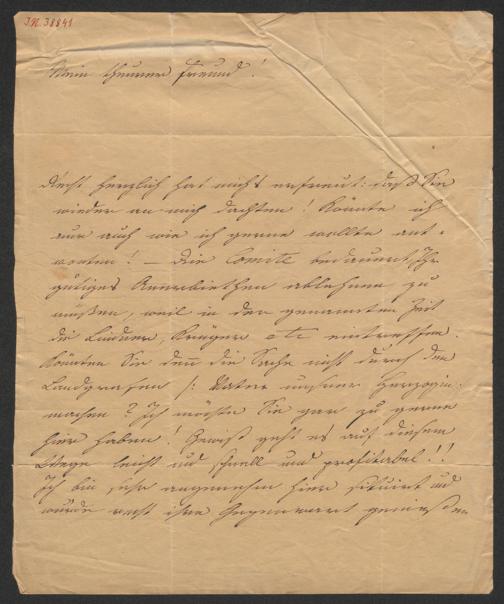 J.N. 38841
Mein theurer Freund!
Recht herzlich hat mich's erfreut: daß Sie
wieder an mich dachten! Könnte ich
nur auch wie ich gerne wollte ant-
worten! – Die Comité bedauert, Ihr
gütiges Anerbiethen ablehnen zu
müßen, weil in der genannten Zeit
die Lindner, Krüger etc eintreffen.
Könnten Sie denn die Sache nicht durch den
Landgrafen /: Vater unsrer Herzogin
machen? Ich möchte Sie gar zu gerne
hier haben! Gewiß geht es auf diesem
Wege leicht und schnell und profitabel!!
Ich bin sehr angenehm hier situirt und
würde recht ihre Gegenwart genießen